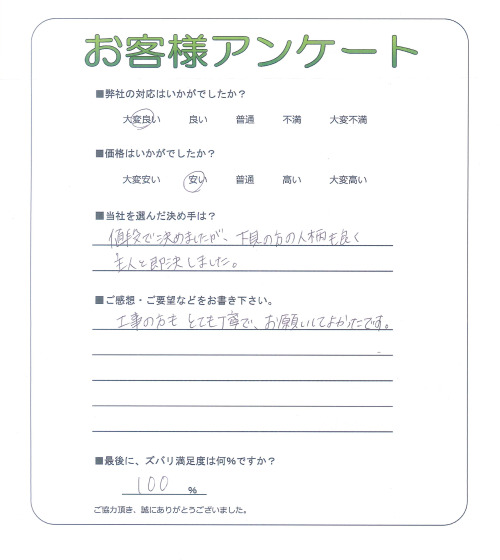 お客様アンケート
■弊社の対応はいかがでしたか？
大変良い 良い 普通 不満 大変不満
■価格はいかがでしたか？
大変安い 安い 普通 高い 大変高い
■当社を選んだ決め手は？
値段で決めましたが、下見の方の人柄も良く
主人と即決しました。
■ご感想・ご要望などをお書き下さい。
工事の方も とても丁寧で、お願いしてよかったです。
■最後に、ズバリ満足度は何％ですか？
100 ％
ご協力頂き、誠にありがとうございました。